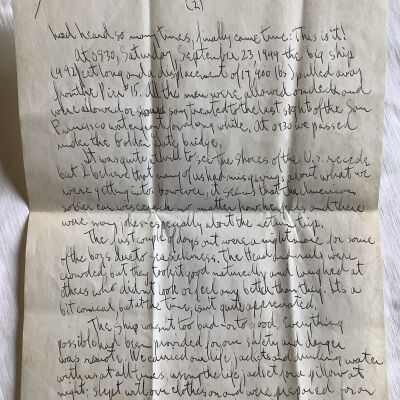 (2)
had heard so many times, finally came true: This is it!
At 0830, Saturday, September 23, 1944 the big ship
(492 feet long and a displacement of 17,900 lbs) pulled away
from the Pier #15. All the men were allowed on deck and
were allowed or say treated to the last sight of the San
Francisco waterfront for a long while. At 0930 we passed
under the Golden Gate bridge.
It was quite a thrill to see the shores of the U.S. recede
but I believe that many of us had misgivings about what we
were getting into. However, it seems that the American
soldier can wisecrack no matter how he feels and there
were many jokes especially about the return trip.
The first couple of days out were a nightmare for some
of the boys due to seasickness. The Head and rails were
crowded but they took it good naturedly and laughed at
others who didn't look or feel any better than they. It's a
bit comical but at the time, isn't quite appreciated.
The ship wasn't too bad or too good. Everything
possible had been provided for our safety and danger
was remote. We carried our life jackets and drinking water
with us at all times, using the life jacket for a pillow at
night; slept with our clothes on and were prepared for